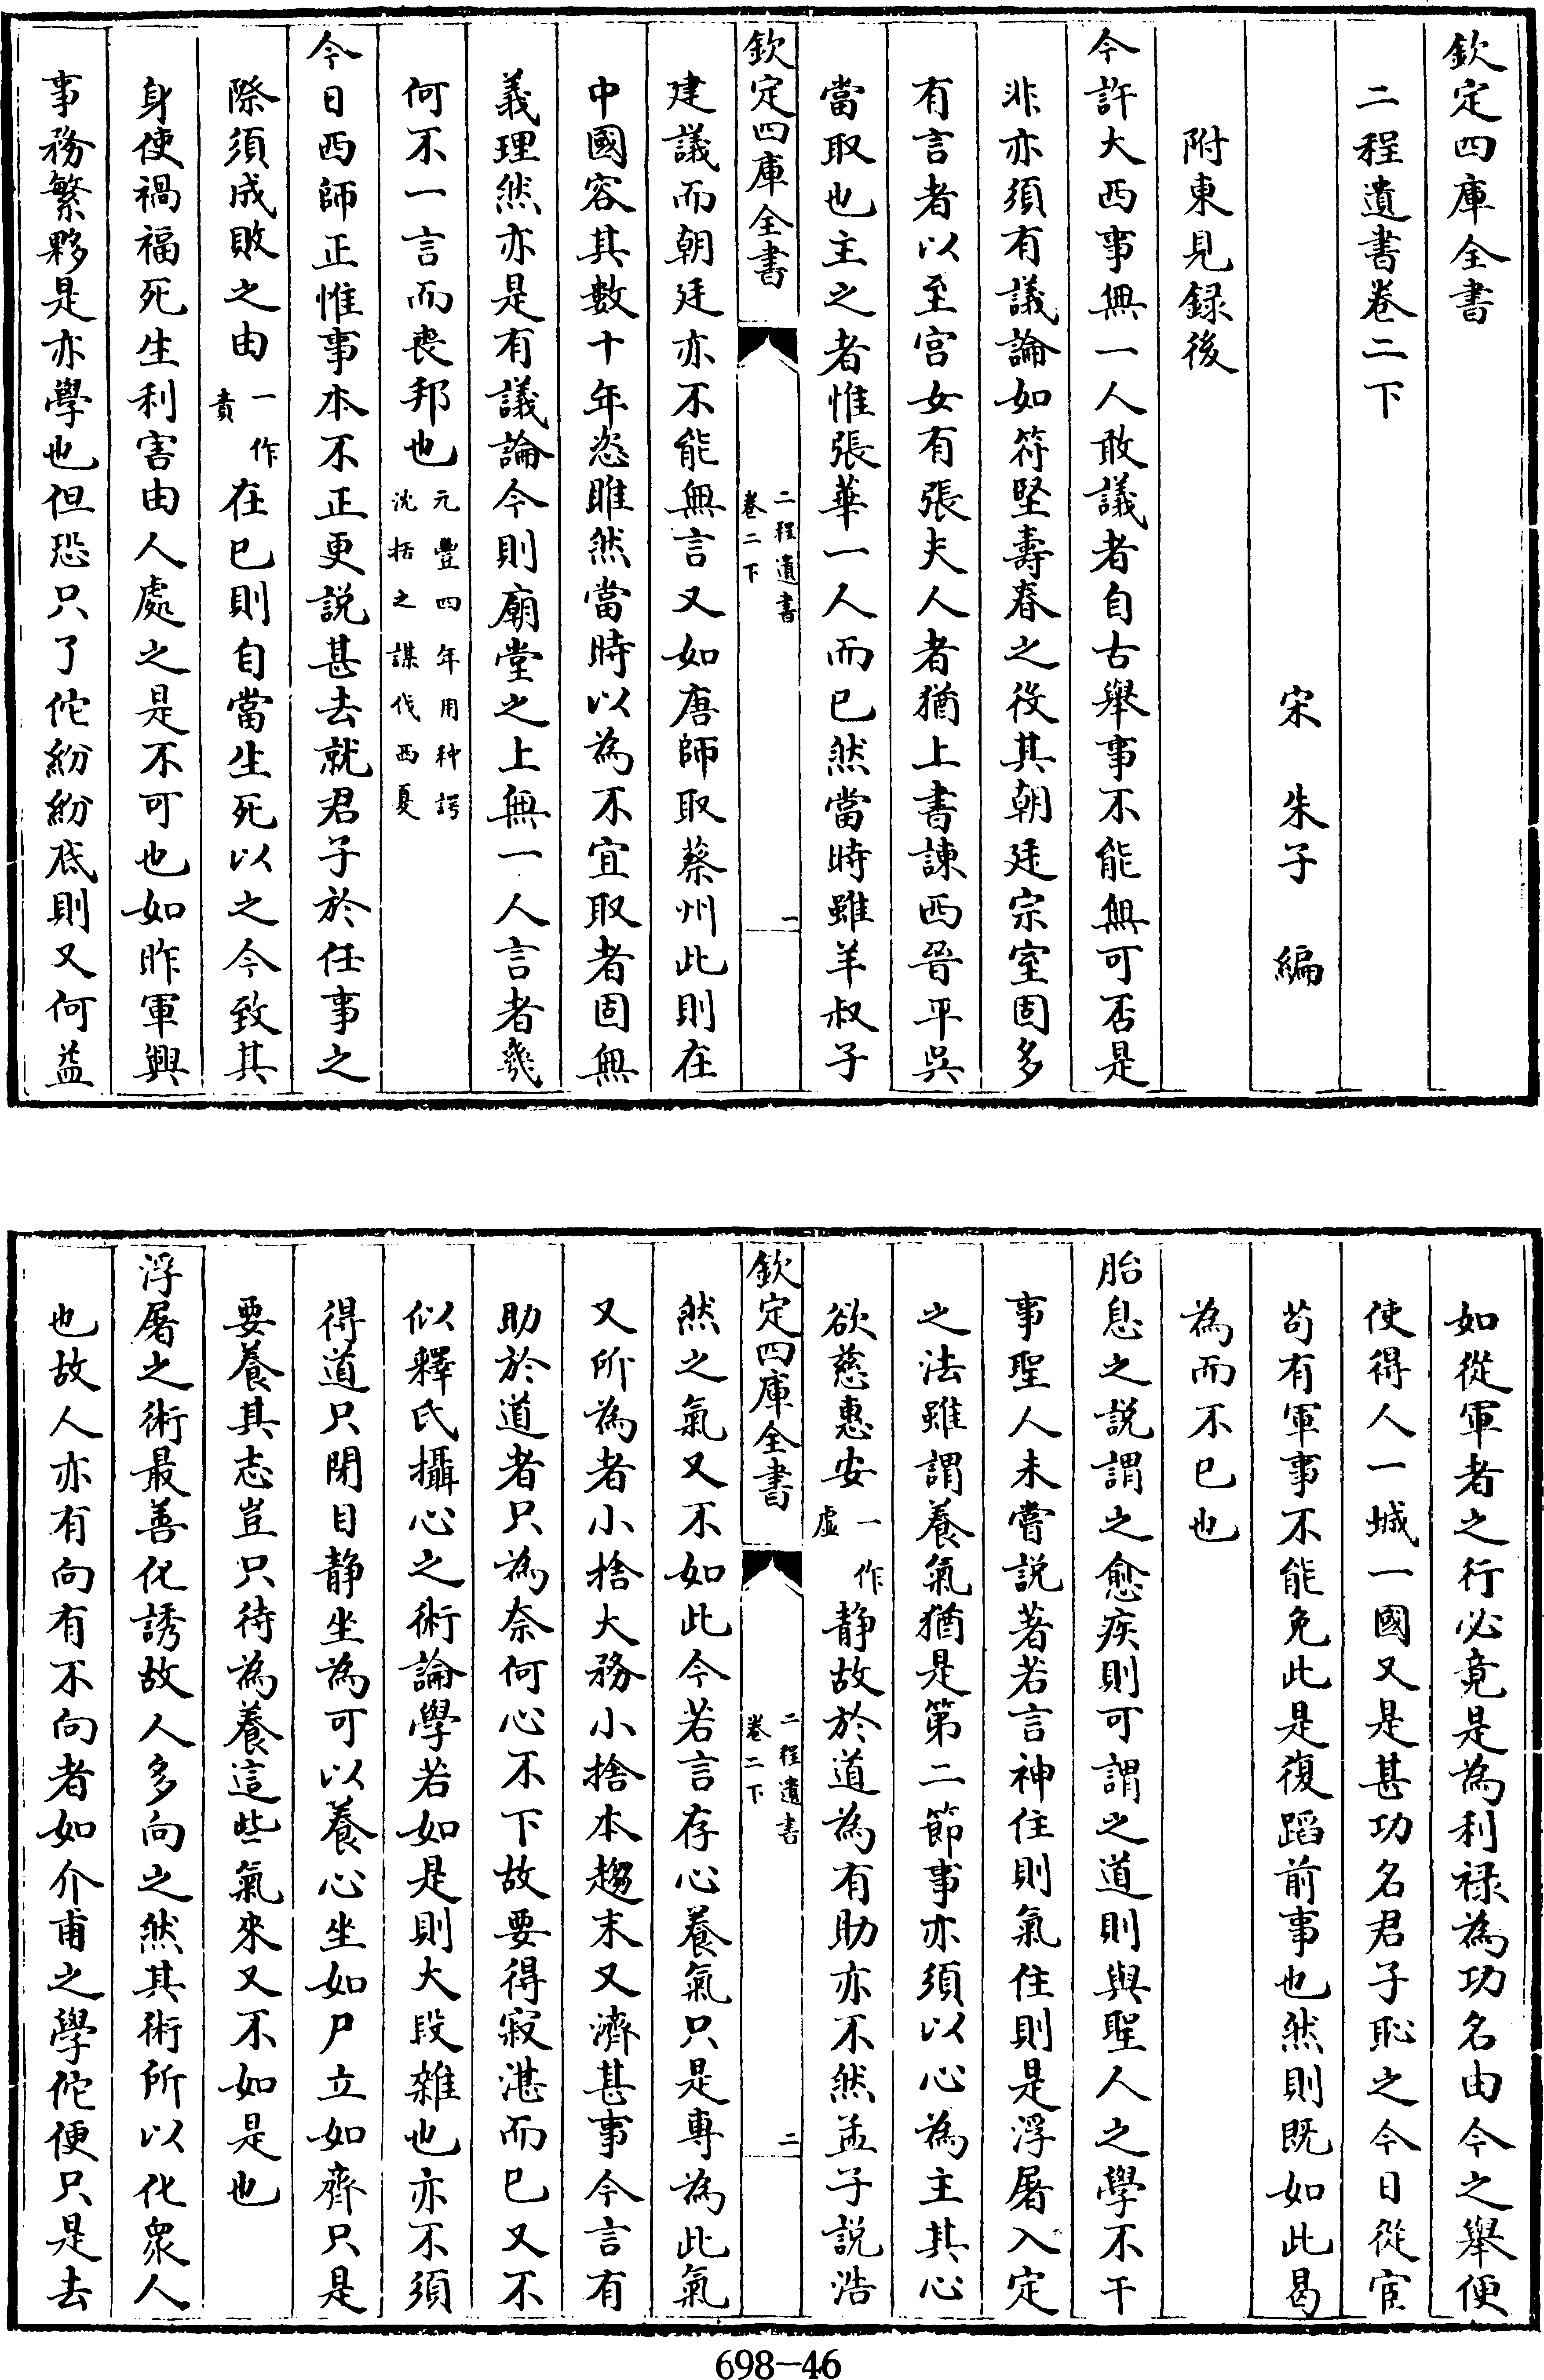 欽定四庫全書
二程遺書卷二下
宋　朱子　編
附東見録後
今許大西事無一人敢議者自古舉事不能無可否是
非亦須有議論如符堅壽春之役其朝廷宗室固多
有言者以至宫女有張夫人者猶上書諫西晉平吳
當取也主之者惟張華一人而已然當時雖羊叔子
欽定四庫全書
二程遺書
卷二下
一
建議而朝廷亦不能無言又如唐師取蔡州此則在
中國容其數十年恣睢然當時以為不宜取者固無
義理然亦是有議論今則廟堂之上無一人言者幾
何不一言而喪邦也元豐四年用种諤沈括之謀伐西夏
今日西師正惟事本不正更説甚去就君子於任事之
際須成敗之由一作責在已則自當生死以之今致其
身使禍福死生利害由人處之是不可也如昨軍興
事務繁夥是亦學也但恐只了佗紛紛底則又何益
如從軍者之行必竟是為利禄為功名由今之舉便
使得人一城一國又是甚功名君子恥之今日從宦
苟有軍事不能免此是復蹈前事也然則既如此曷
為而不已也
胎息之説謂之愈疾則可謂之道則與聖人之學不干
事聖人未嘗説著若言神住則氣住則是浮屠入定
之法雖謂養氣猶是第二節事亦須以心為主其心
欲慈惠安一作虛静故於道為有助亦不然孟子説浩
欽定四庫全書
二程遺書
卷二下
二
然之氣又不如此今若言存心養氣只是專為此氣
又所為者小捨大務小捨本趨末又濟甚事今言有
助於道者只為奈何心不下故要得寂湛而已又不
似釋氏攝心之術論學若如是則大段雜也亦不須
得道只閉目静坐為可以養心坐如尸立如齊只是
要養其志豈只待為養這些氣來又不如是也
浮屠之術最善化誘故人多向之然其術所以化衆人
也故人亦有向有不向者如介甫之學佗便只是去
698-46